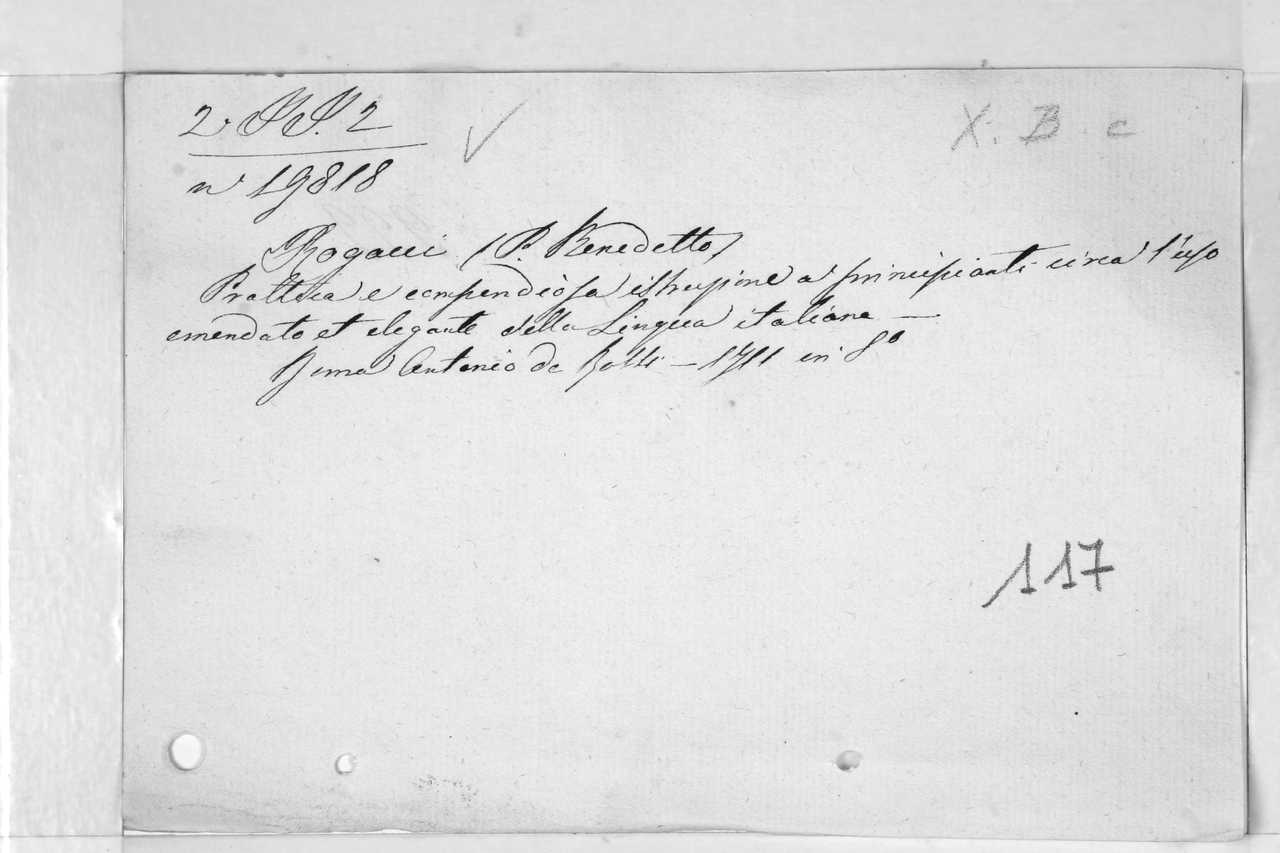 2. SS. 2
X. B c
n° 19818
Rogacci (P. Benedetto)
Prattica e compendiosa istruzione a' principianti circa l'uso
emendato et elegante della Lingua italiana —
Roma Antonio de Rossi — 1711 in 8°
117